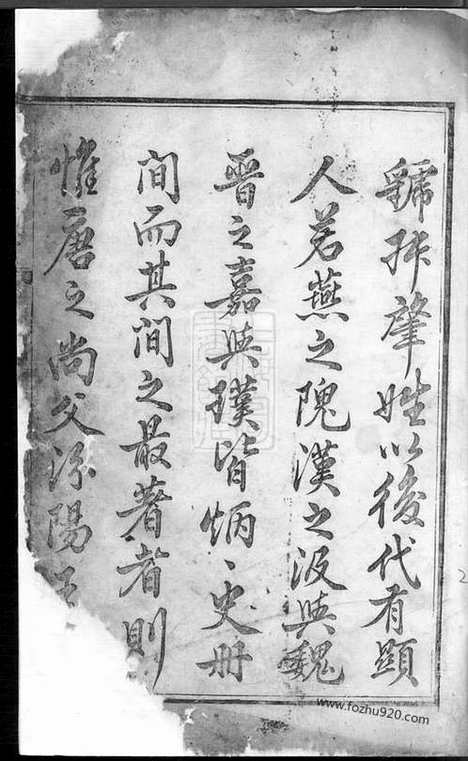 虢叔肇姓以後代有顯
人若燕之隗漢之汲與魏
晋之嘉與璞皆炳、史册
间而其间之最著者則
惟唐之尚父汾陽王
www.fozhu920.com